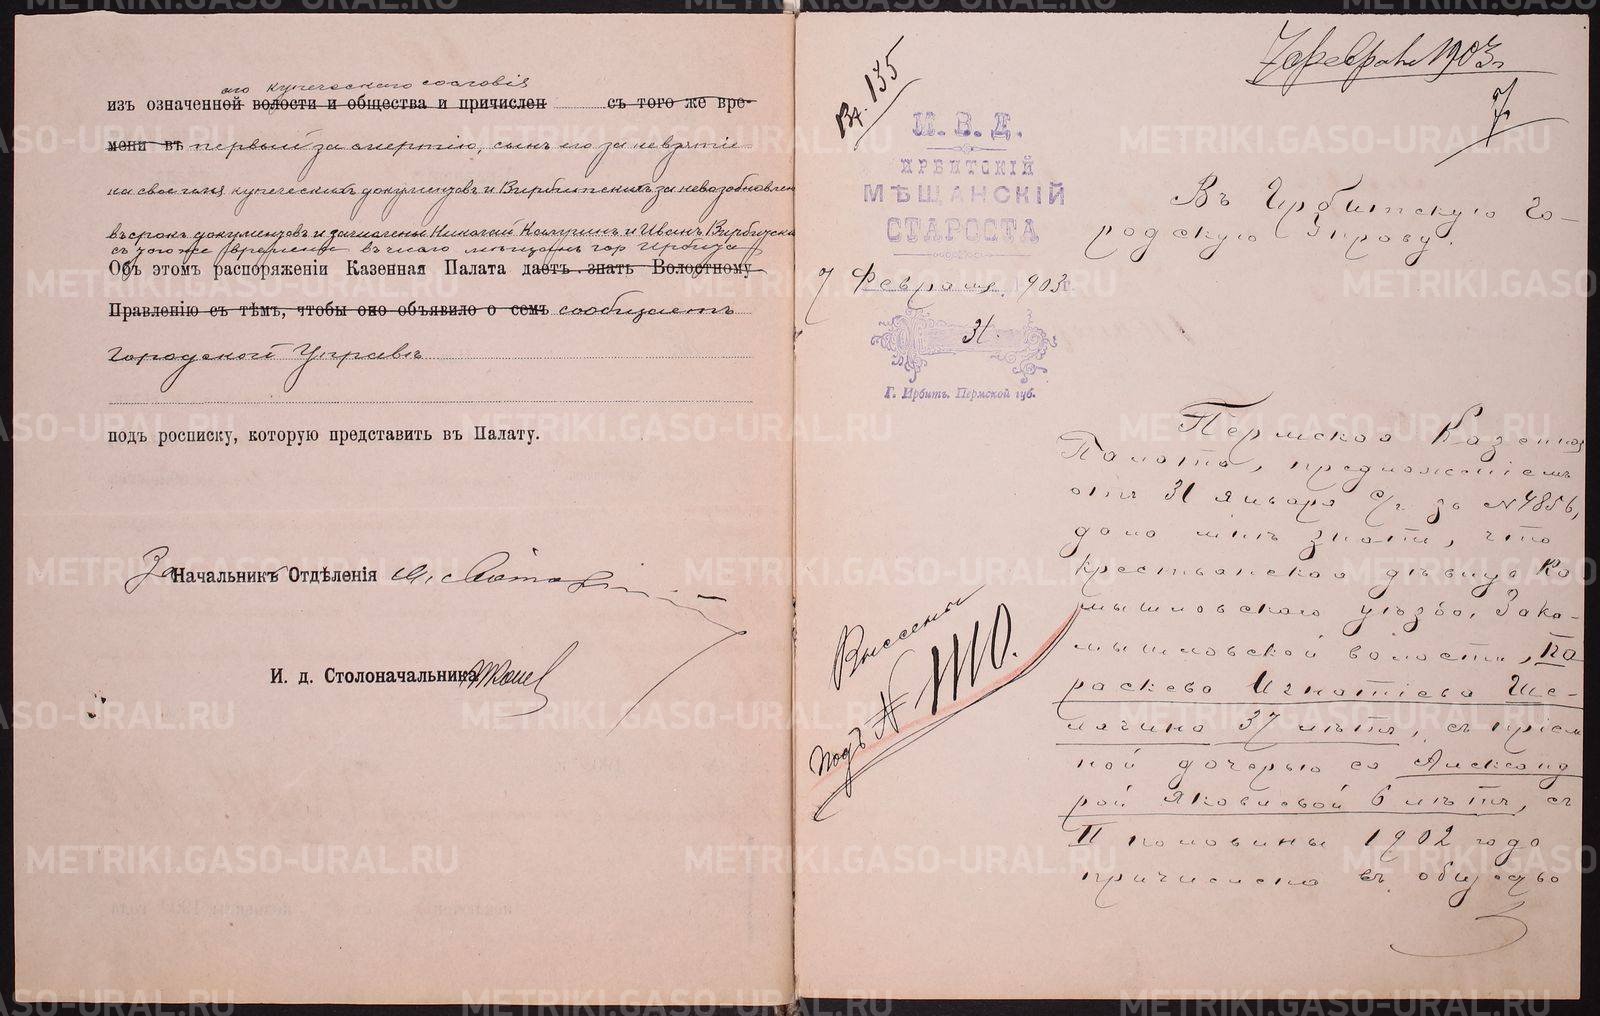 его купеческаго сословія
изъ означенной волости и общества и причислен съ того же вре-
мени въ первый за смертію, сынъ его за невзятіе
на свое имя купеческихъ документовъ и за невозобновлен
въ срокъ документовъ и зачислены Николай и Иванъ
съ того же времени въ число мѣщанъ гор Ирбита
Объ этомъ распоряженіи Казенная Палата даетъ знать Волостному
Правленію съ тѣмъ, чтобы оно объявило о семъ сообщаетъ
Городской Управѣ
подъ росписку, которую представить въ Палату.
За Начальникъ Отдѣленія
И. д. Столоначальника
7 февраля 1903 г
7
Вх. 135
И. В. Д.
ИРБИТСКІЙ
МѢЩАНСКІЙ
СТАРОСТА
7 Февраля 1903 г.
31.
Г. Ирбитъ. Пермской губ.
Въ Ирбитскую Го-
родскую Управу.
Пермская Казенная
Палата, предложеніемъ
отъ 31 января с/г за № 4856,
дала мнѣ знать, что
крестьянская дѣвица Ка
мышловскаго уѣзда, Зака-
мышловской волости, Па
раскева Игнатіева Ше-
лачина 37 лѣтъ, съ пріем
ной дочерью ея Александ
рой Яковлевой 6 лѣтъ, съ
II половины 1902 года
причислена въ общество
Внесены
подъ №
METRIKI.GASO-URAL.RU